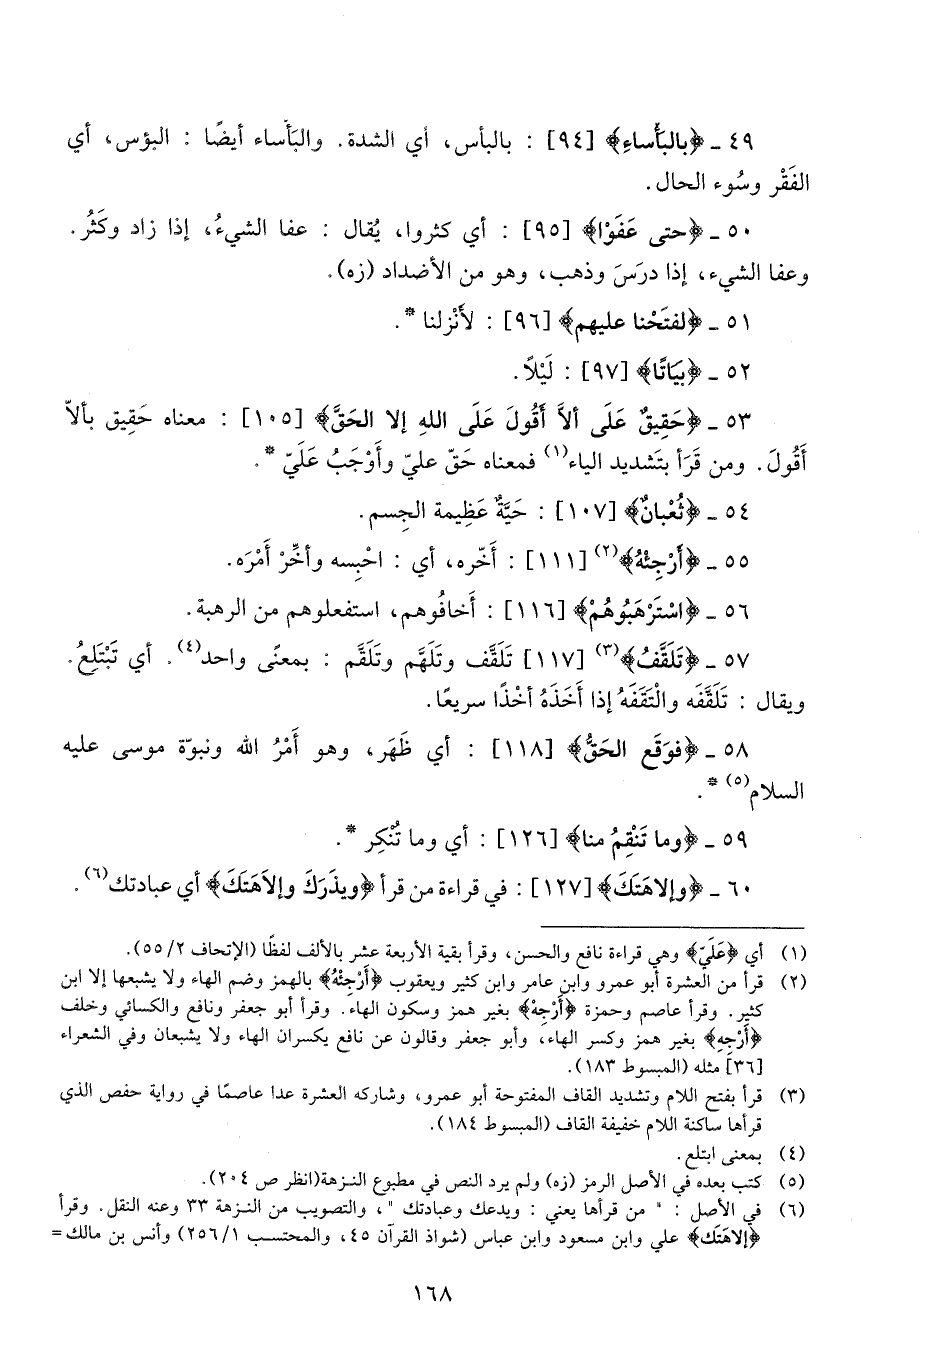 ٤٩ ـ ﴿بالبَأْساءِ﴾ [٩٤] : بالبأس، أي الشدة. والبَأْساء أيضًا : البؤس، أي
الفَقْر وسُوء الحال.
٥٠ ـ ﴿حتى عَفَوْا﴾ [٩٥] : أي كثروا، يُقال : عفا الشيءُ، إذا زاد وكَثُر.
وعفا الشيء، إذا درَسَ وذهب، وهو من الأضداد (زه).
٥١ ـ ﴿لفتَحْنا عليهم﴾ [٩٦] : لأَنْزلنا *.
٥٢ ـ ﴿بيَاتًا﴾ [٩٧] : لَيْلاً.
٥٣ ـ ﴿حَقِيقٌ عَلَى ألاَّ أَقُولَ عَلَى اللهِ إلا الحَقَّ﴾ [١٠٥] : معناه حَقِيق بألاّ
أَقُولَ. ومن قَرَأ بتَشديد الياء(١) فمعناه حَقّ عليّ وأَوْجَبُ عَلَيّ *.
٥٤ ـ ﴿ثُعْبانٌ﴾ [١٠٧] : حَيَّةٌ عَظِيمة الجِسم.
٥٥ ـ ﴿أَرْجِئْهُ﴾(٢) [١١١] : أَخّره، أي : احْبِسه وأخِّرْ أَمْرَه.
٥٦ ـ ﴿اسْتَرْهَبُوهُمْ﴾ [١١٦] : أَخافُوهم، استفعلوهم من الرهبة.
٥٧ ـ ﴿تَلَقَّفُ﴾(٣) [١١٧] تَلَقَّف وتَلَهَّم وتَلَقَّم : بمعنًى واحد(٤). أي تَبْتَلِعُ.
ويقال : تَلَقَّفَه والْتَقَفَهُ إذا أَخَذَهُ أخْذًا سريعًا.
٥٨ ـ ﴿فوَقَع الحَقُّ﴾ [١١٨] : أي ظَهَر، وهو أَمْرُ الله ونبوّة موسى عليه
السلام(٥) *.
٥٩ ـ ﴿وما تَنْقِمُ منا﴾ [١٢٦] : أي وما تُنْكِر *.
٦٠ ـ ﴿وإلاهَتَكَ﴾ [١٢٧] : في قراءة من قرأ ﴿ويذَرَكَ وإلاَهَتَكَ﴾ أي عبادتك(٦).
(١) أي ﴿عَلَيّ﴾ وهي قراءة نافع والحسن، وقرأ بقية الأربعة عشر بالألف لفظًا (الإتحاف ٢/ ٥٥).
(٢) قرأ من العشرة أبو عمرو وابن عامر وابن كثير ويعقوب ﴿أَرْجِئْهُ﴾ بالهمز وضم الهاء ولا يشبعها إلا ابن
كثير. وقرأ عاصم وحمزة ﴿أَرْجِهْ﴾ بغير همز وسكون الهاء. وقرأ أبو جعفر ونافع والكسائي وخلف
﴿أَرْجِهِ﴾ بغير همز وكسر الهاء، وأبو جعفر وقالون عن نافع يكسران الهاء ولا يشبعان وفي الشعراء
[٣٦] مثله (المبسوط ١٨٣).
(٣) قرأ بفتح اللام وتشديد القاف المفتوحة أبو عمرو، وشاركه العشرة عدا عاصمًا في رواية حفص الذي
قرأها ساكنة اللام خفيفة القاف (المبسوط ١٨٤).
(٤) بمعنى ابتلع.
(٥) كتب بعده في الأصل الرمز (زه) ولم يرد النص في مطبوع النـزهة(انظر ص ٢٠٤).
(٦) في الأصل : " من قرأها يعني : ويدعك وعبادتك "، والتصويب من النـزهة ٣٣ وعنه النقل. وقرأ
﴿إلاهَتَك﴾ علي وابن مسعود وابن عباس (شواذ القرآن ٤٥، والمحتسب ١/ ٢٥٦) وأنس بن مالك=
١٦٨